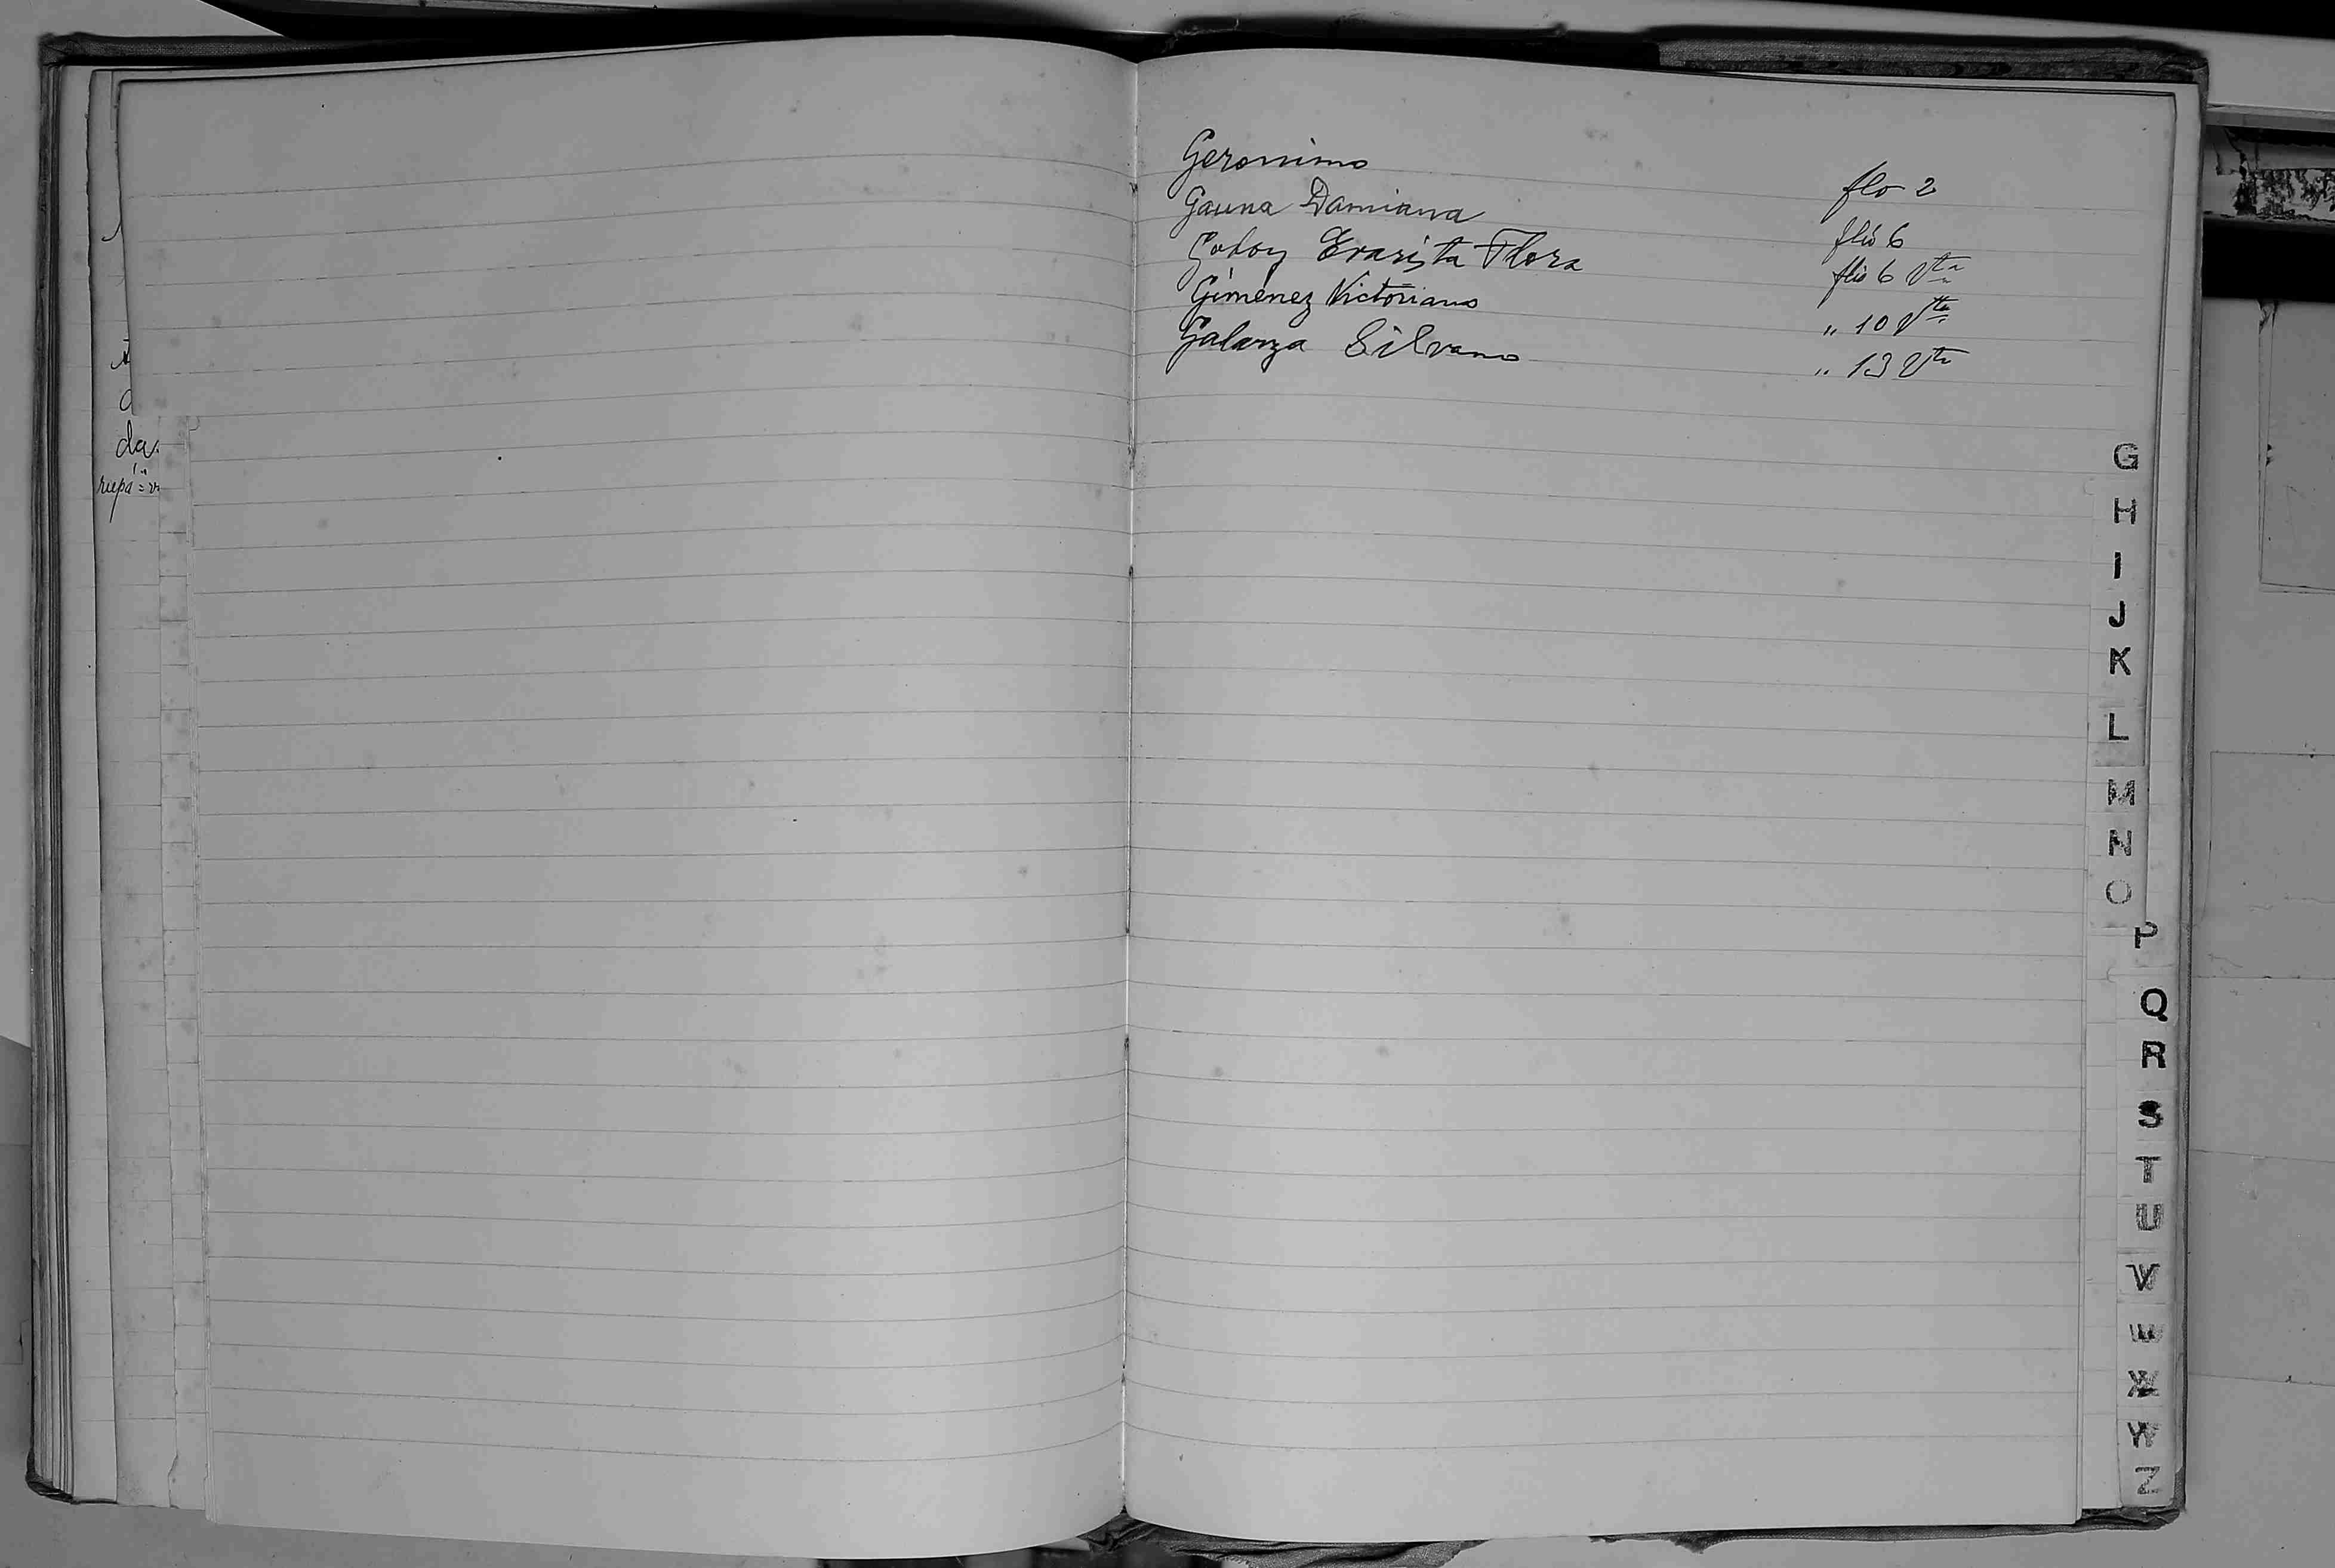 da
Geronimo flo 2
Gauna Damiana flio 6
Godoy Evarista Flora flio 6 Vta
Gimenez Victoriano " 10 Vta
Galarza Silvano " 13 Vta
G
H
I
J
K
L
M
N
O
P
Q
R
S
T
U
V
W
X
Y
Z